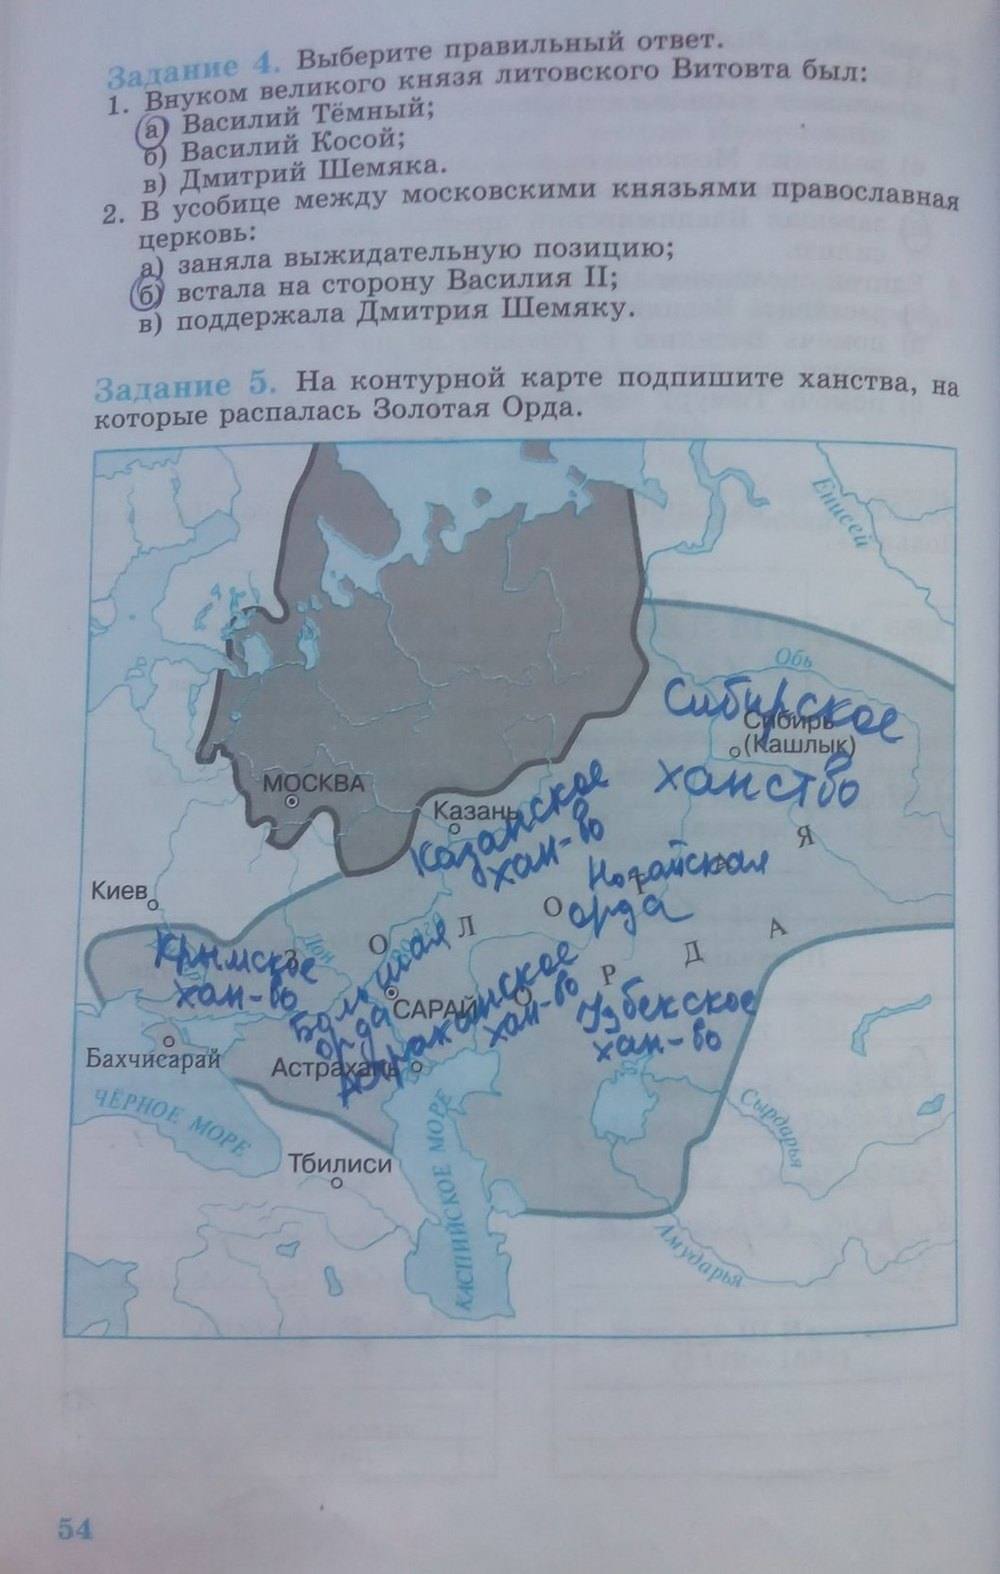 Задание 4. Выберите правильный ответ.
1. Внуком великого князя литовского Витовта был:
а) Василий Тёмный;
б) Василий Косой;
в) Дмитрий Шемяка.
2. В усобице между московскими князьями православная
церковь:
а) заняла выжидательную позицию;
б) встала на сторону Василия II;
в) поддержала Дмитрия Шемяку.
Задание 5. На контурной карте подпишите ханства, на
которые распалась Золотая Орда.
Енисей
Обь
Сибирское
Сибирь
(Кашлык)
ханство
МОСКВА
Казань
Казанское
хан-во
Ногайская
орда
Киев
ЗОЛОТАЯ
ОРДА
Дон
Крымское
хан-во
Большая
орда
САРАЙ
Астраханское
хан-во
Узбекское
хан-во
Бахчисарай
Астрахань
ЧЁРНОЕ МОРЕ
КАСПИЙСКОЕ МОРЕ
Сырдарья
Тбилиси
Амударья
54